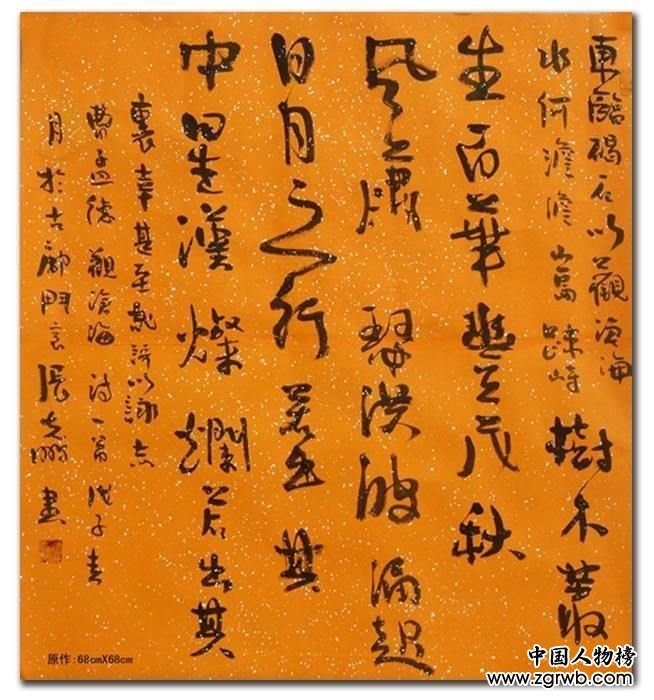 東臨碣石以觀滄海
水何澹澹山島竦峙
樹木叢
生百草豐茂秋
風蕭瑟洪波涌起
日月之行若出其
中星漢燦爛若出其
裏幸甚至詩以詠志
曹孟德觀滄海詩一首戊子春
月於古門張書
原作:68cmX68cm
中国人物榜
www.zgrwb.com